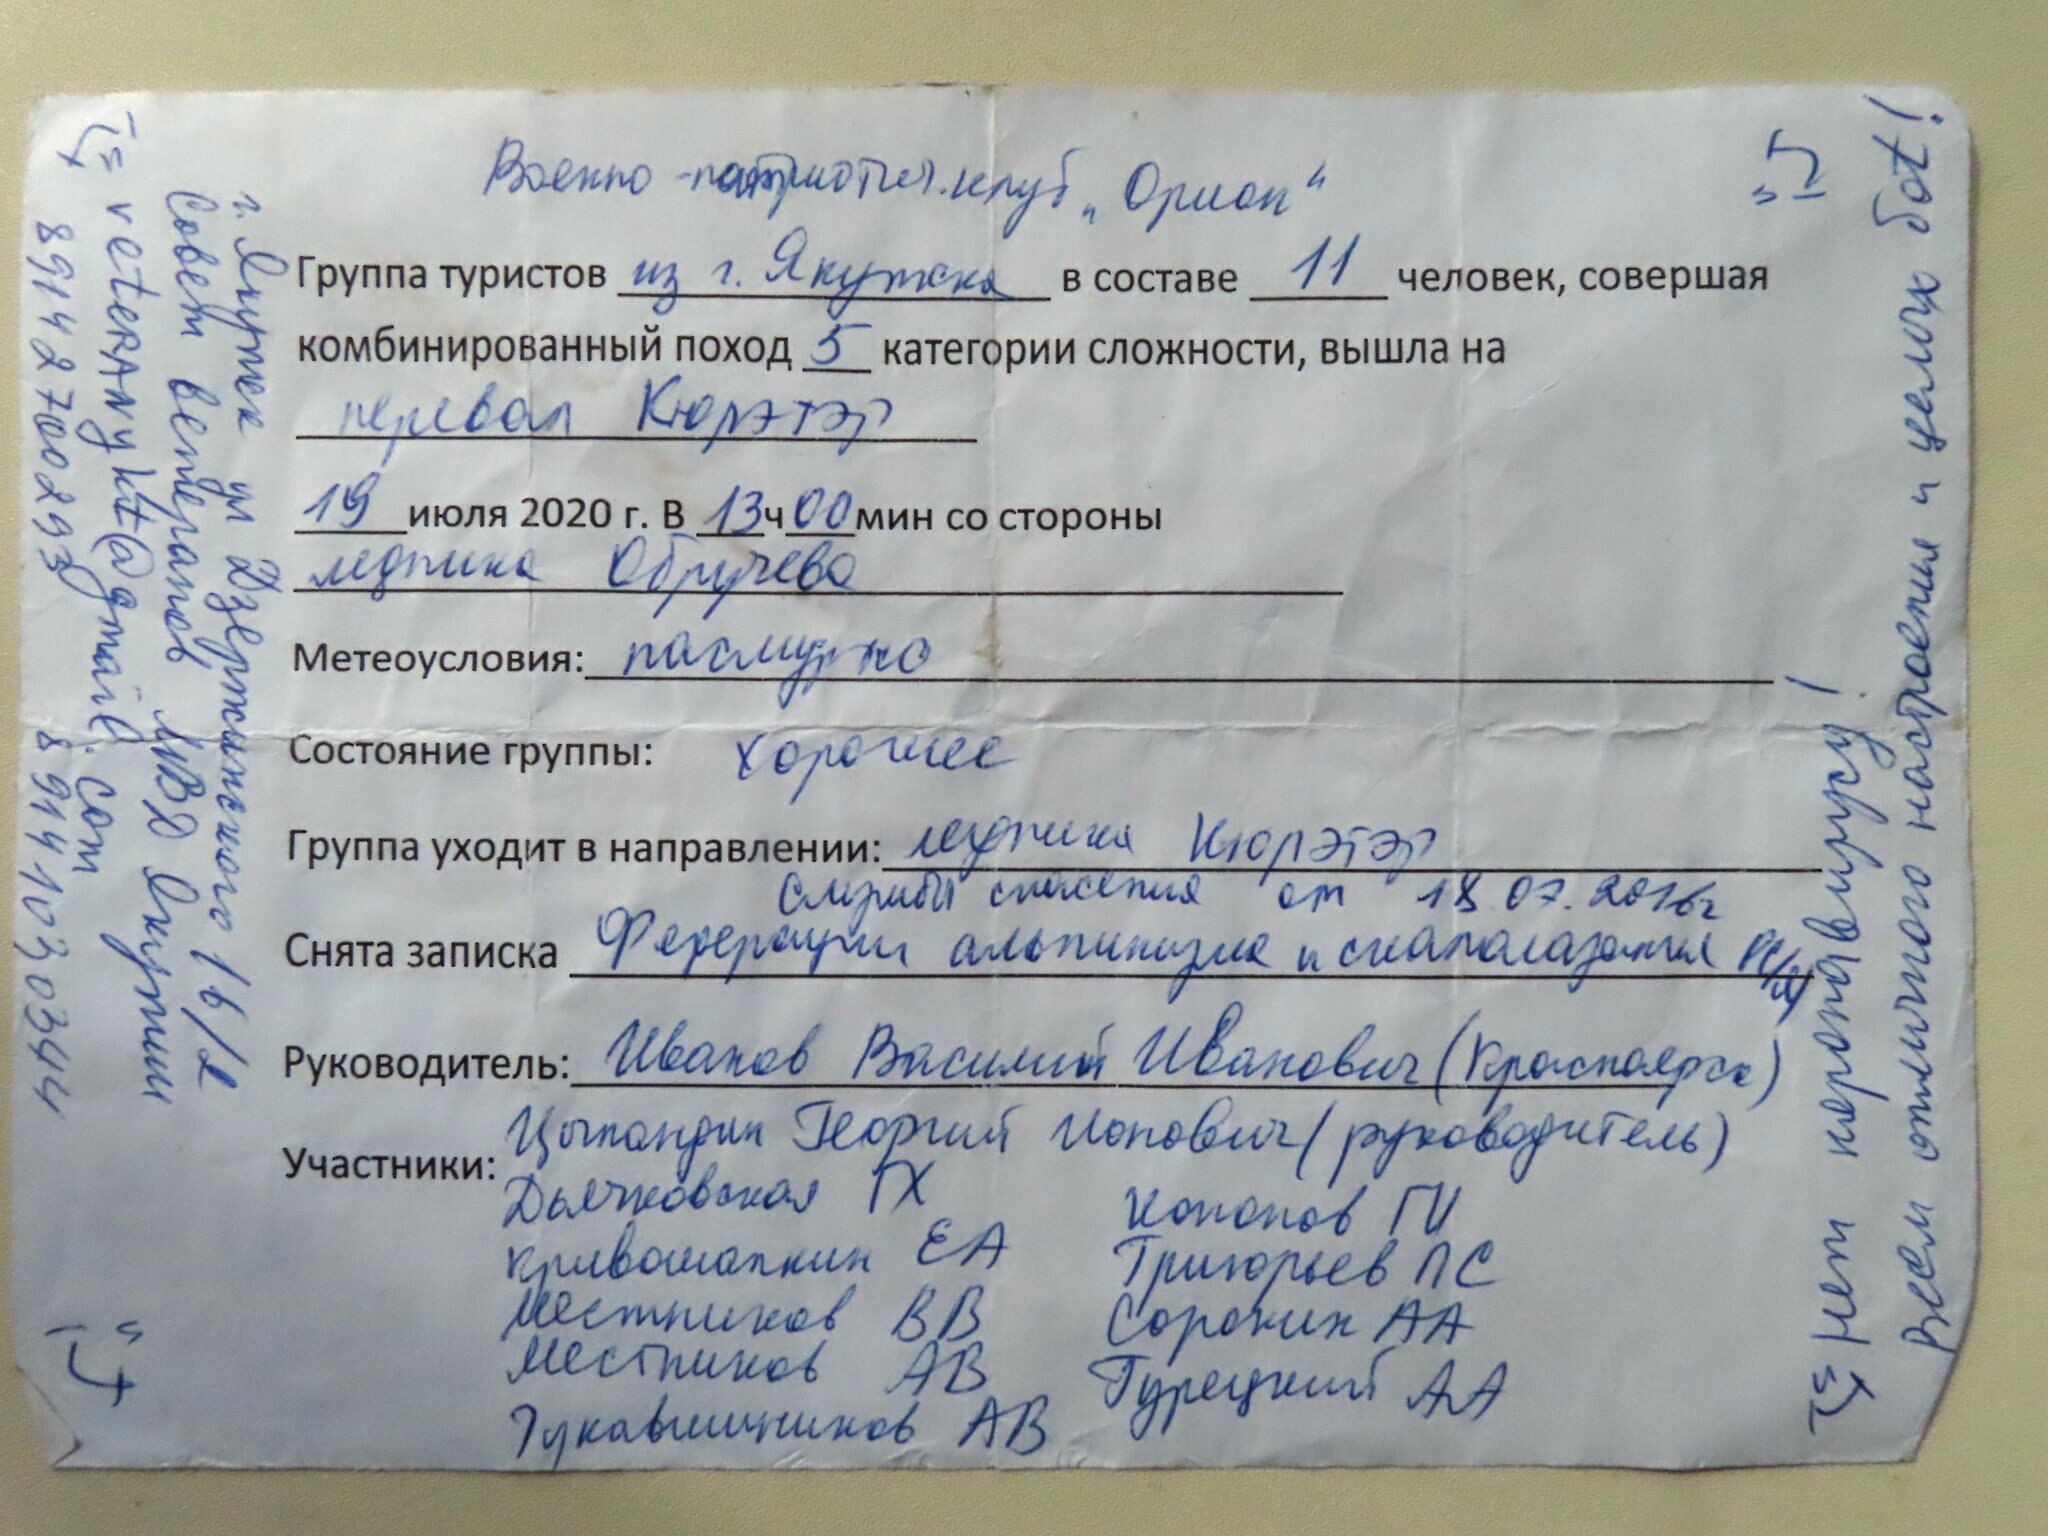 Военно-патриотич. клуб „Орион“
Группа туристов из г. Якутска в составе 11 человек, совершая
комбинированный поход 5 категории сложности, вышла на
перевал Кюрэтэр
19 июля 2020 г. В 13 ч 00 мин со стороны
ледника Обручева
Метеоусловия: пасмурно
Состояние группы: хорошее
Группа уходит в направлении: ледника Кюрэтэр
Службы спасения от 18.07.2016г
Снята записка Федерации альпинизма и скалолазания РС/Я/
Руководитель: Иванов Василий Иванович (Красноярск)
Цыпандин Георгий Ионович (руководитель)
Участники:
Дьячковская ГХ
Кривошапкин ЕА
Местников ВВ
Местников АВ
Лукавишников АВ
Кононов ГИ
Григорьев ПС
Сорокин АА
Турецкий АА
г. Якутск ул Дзержинского 16/2
Совет ветеранов МВД Якутии
veteranykt@gmail.com
89142700293 89141030344
Нет коронавирусу!
Всем отличного настроения и целых бот!